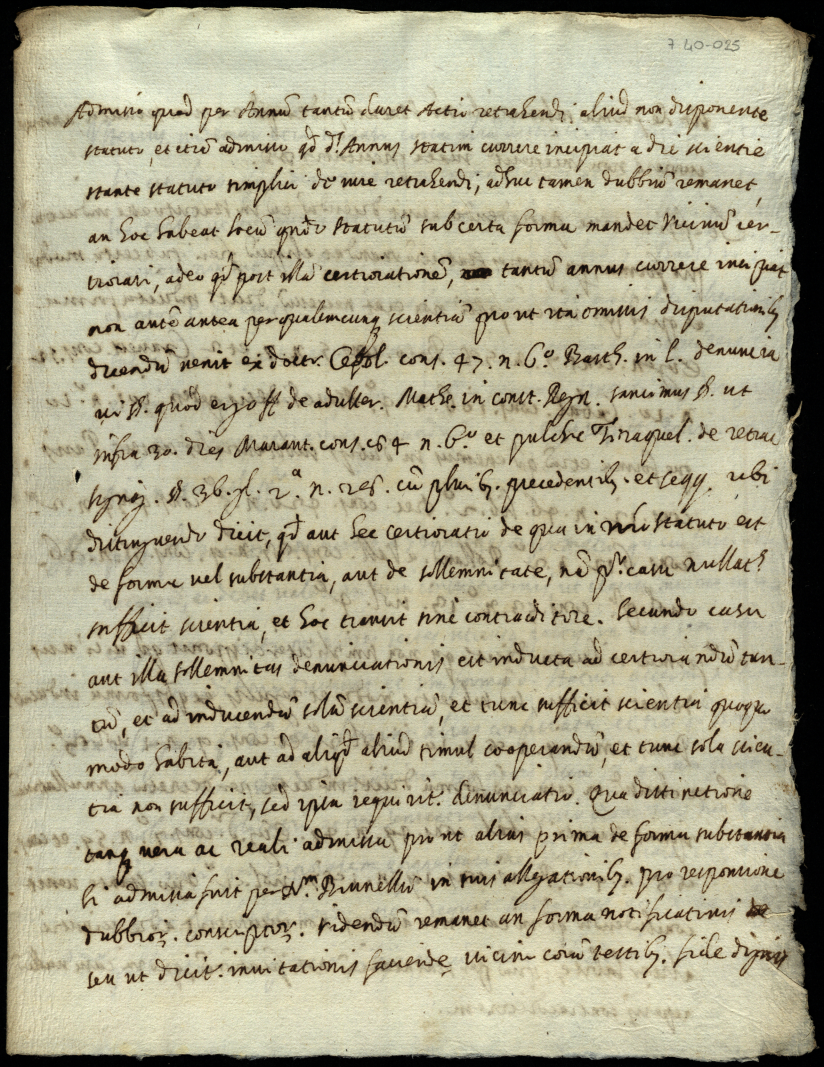 7 40-025
Admisso quod per Annũ tantũ duret Actio retrahendi, aliud non disponente
statuto, et etiã admisso qd d.s Annus statim currere incipiat a die scientie
stante statuto simplici de iure retrahendi; adhuc tamen dubbiũ remanet,
an hoc habeat locũ quãdo statutũ sub certa forma mandet vicinũ cer-
tiorari, adeo qd post illã certiorationẽ, tantũ annus currere incipiat
non autẽ antea per qualemcunq scientiã pro ut ità omissis disputationib.
dicendũ venit ex doctr. Cepol. cons. 47. n. 6.o Barth. in l. denuncia
§. quod ergo ff de adulter. Mathe. in const. Regn. sancimus §. ut
infra 30. dies Marant. cons. 64 n. 6.o et pulchre Tiraquel. de retrac
lignag. §. 36. gl. 2.a n. 26. cũ plurib. precedentib. et seqq. ubi
distinguendo dicit, qd aut hec certioratio de qua in nro statuto est
de forma vel substantia, aut de sollemnitate, nã pr.o casu nullat.s
sufficit scientia, et hoc transit sine contradictore. Secundo casu
aut illa sollemnitas denunciationis est inducta ad certiorandũ tan-
tũ, et ad inducendũ solã scientiã, et tunc sufficit scientia quoquo
modo habita, aut ad aliqd aliud simul cooperandũ, et tunc sola scien-
tia non sufficit, sed ipsa requirit. dinunciatio. Qua distinctione
tanq vera ac reali admissa pro ut alias prima de forma substantia
li admissa fuit per D.m Brunellũ in suis allegationib. pro responsione
dubbior. conscriptor. videndũ remanet an forma notificationis
seu ut dicit. invitationis faciende vicini corã testib. fide dignis